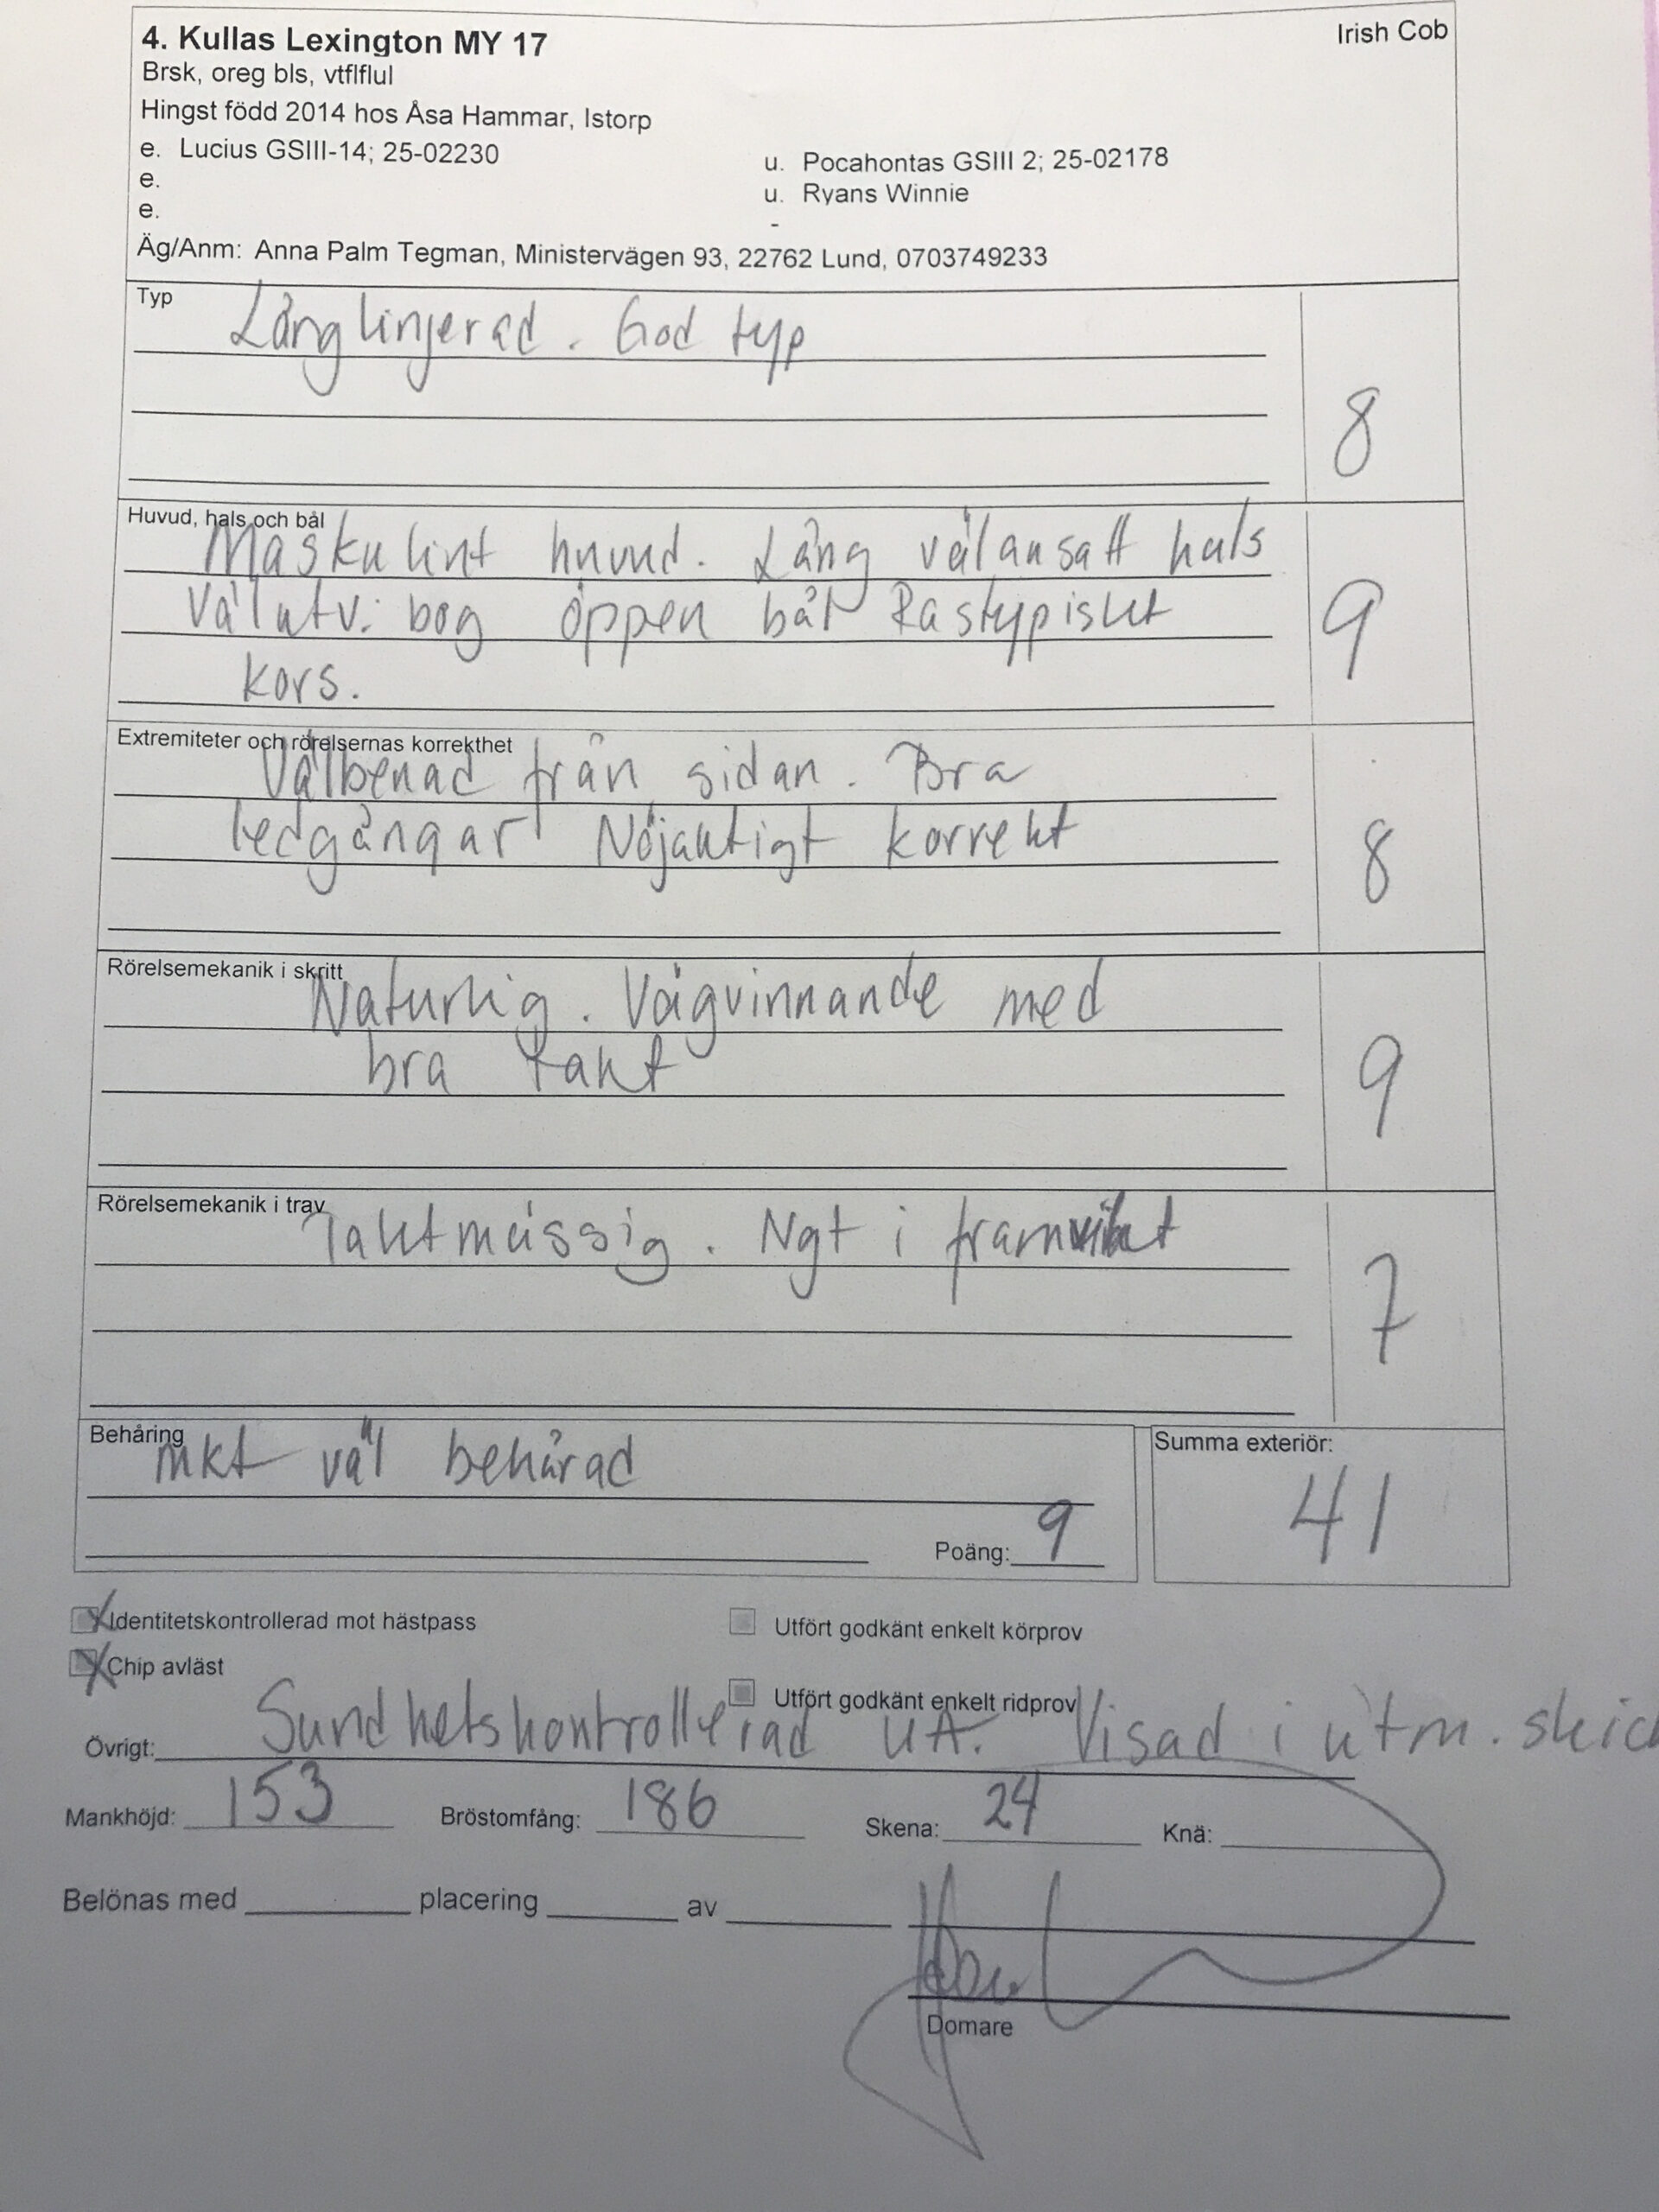 4. Kullas Lexington MY 17
Irish Cob
Brsk, oreg bls, vtflflul
Hingst född 2014 hos Åsa Hammar, Istorp
e. Lucius GSIII-14; 25-02230
u. Pocahontas GSIII 2; 25-02178
e.
u. Ryans Winnie
e.
-
Äg/Anm: Anna Palm Tegman, Ministervägen 93, 22762 Lund, 0703749233
Typ
Långlinjerad. God typ
8
Huvud, hals och bål
Maskulint huvud. Lång välansatt hals
Välutv. bog öppen bål Rastypiskt
kors.
9
Extremiteter och rörelsernas korrekthet
Välbenad från sidan. Bra
ledgångar Nöjaktigt korrekt
8
Rörelsemekanik i skritt
Naturlig. Vägvinnande med
bra takt
9
Rörelsemekanik i trav
Taktmässig. Ngt i framvikt
7
Behåring
mkt väl behårad
Poäng: 9
Summa exteriör:
41
Identitetskontrollerad mot hästpass
Utfört godkänt enkelt körprov
Chip avläst
Utfört godkänt enkelt ridprov
Övrigt: Sundhetskontrollerad UA. Visad i utm. skic
Mankhöjd: 153 Bröstomfång: 186 Skena: 24 Knä:
Belönas med placering av
Domare